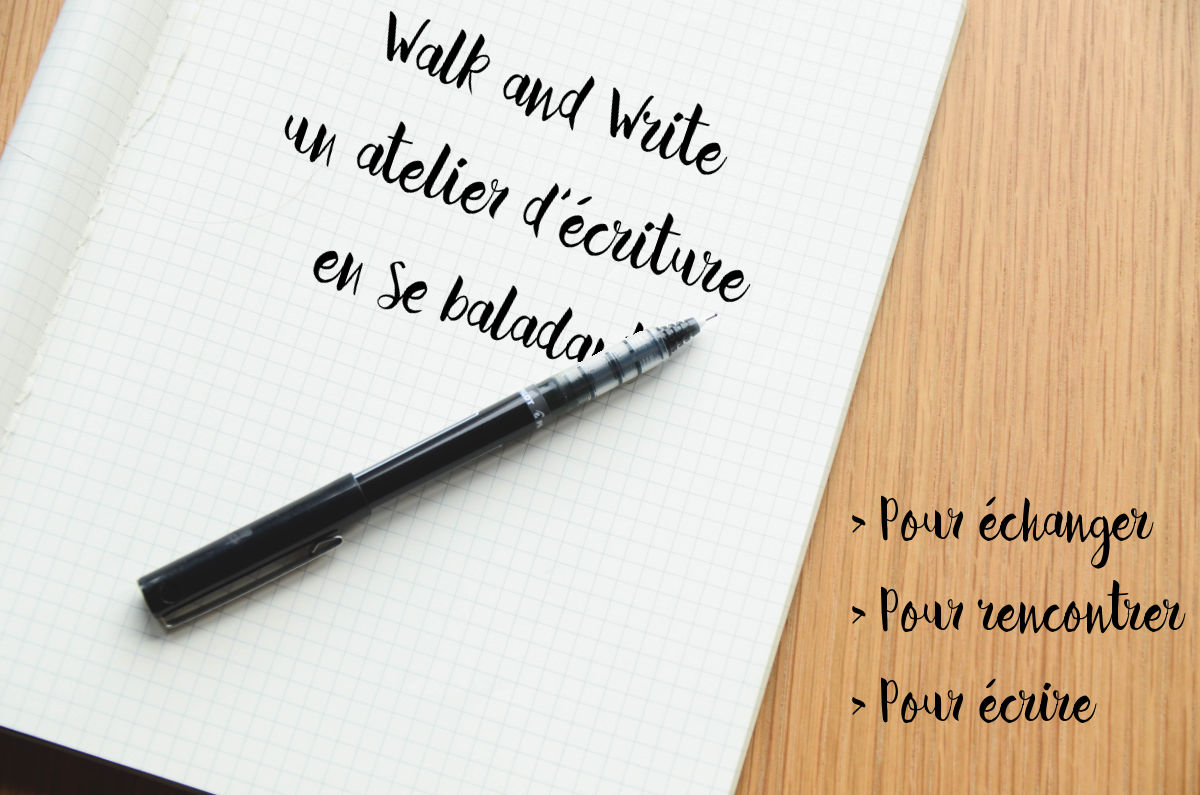 Walk and Write
un atelier d'écriture
en se
> Pour échanger
> Pour rencontrer
> Pour écrire